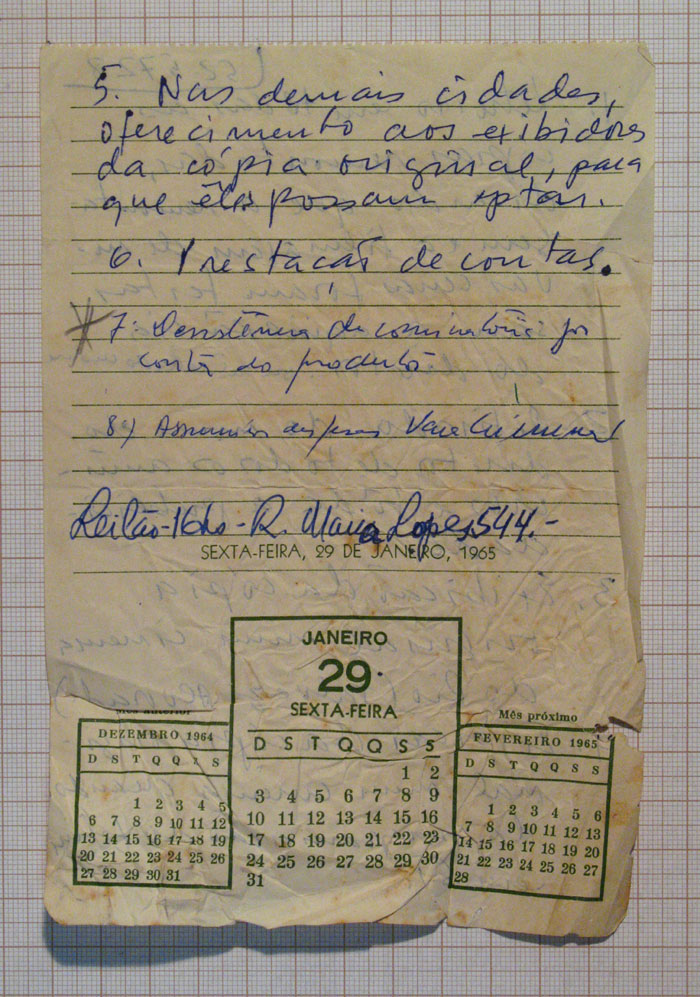 5. Nas demais cidades,
oferecimento aos exibidores
da cópia original, para
que êles possam optar.
6. Prestação de contas.
7. Desistência da cominatória por
conta do produtor
8) Assumir despesas
Leilão - 16hs - R. Maria Lopes 544.-
SEXTA-FEIRA, 29 DE JANEIRO, 1965
JANEIRO
29
SEXTA-FEIRA
D S T Q Q S S
1 2
3 4 5 6 7 8 9
10 11 12 13 14 15 16
17 18 19 20 21 22 23
24 25 26 27 28 29 30
31
Mês anterior
DEZEMBRO 1964
D S T Q Q S S
1 2 3 4 5
6 7 8 9 10 11 12
13 14 15 16 17 18 19
20 21 22 23 24 25 26
27 28 29 30 31
Mês próximo
FEVEREIRO 1965
D S T Q Q S S
1 2 3 4 5 6
7 8 9 10 11 12 13
14 15 16 17 18 19 20
21 22 23 24 25 26 27
28